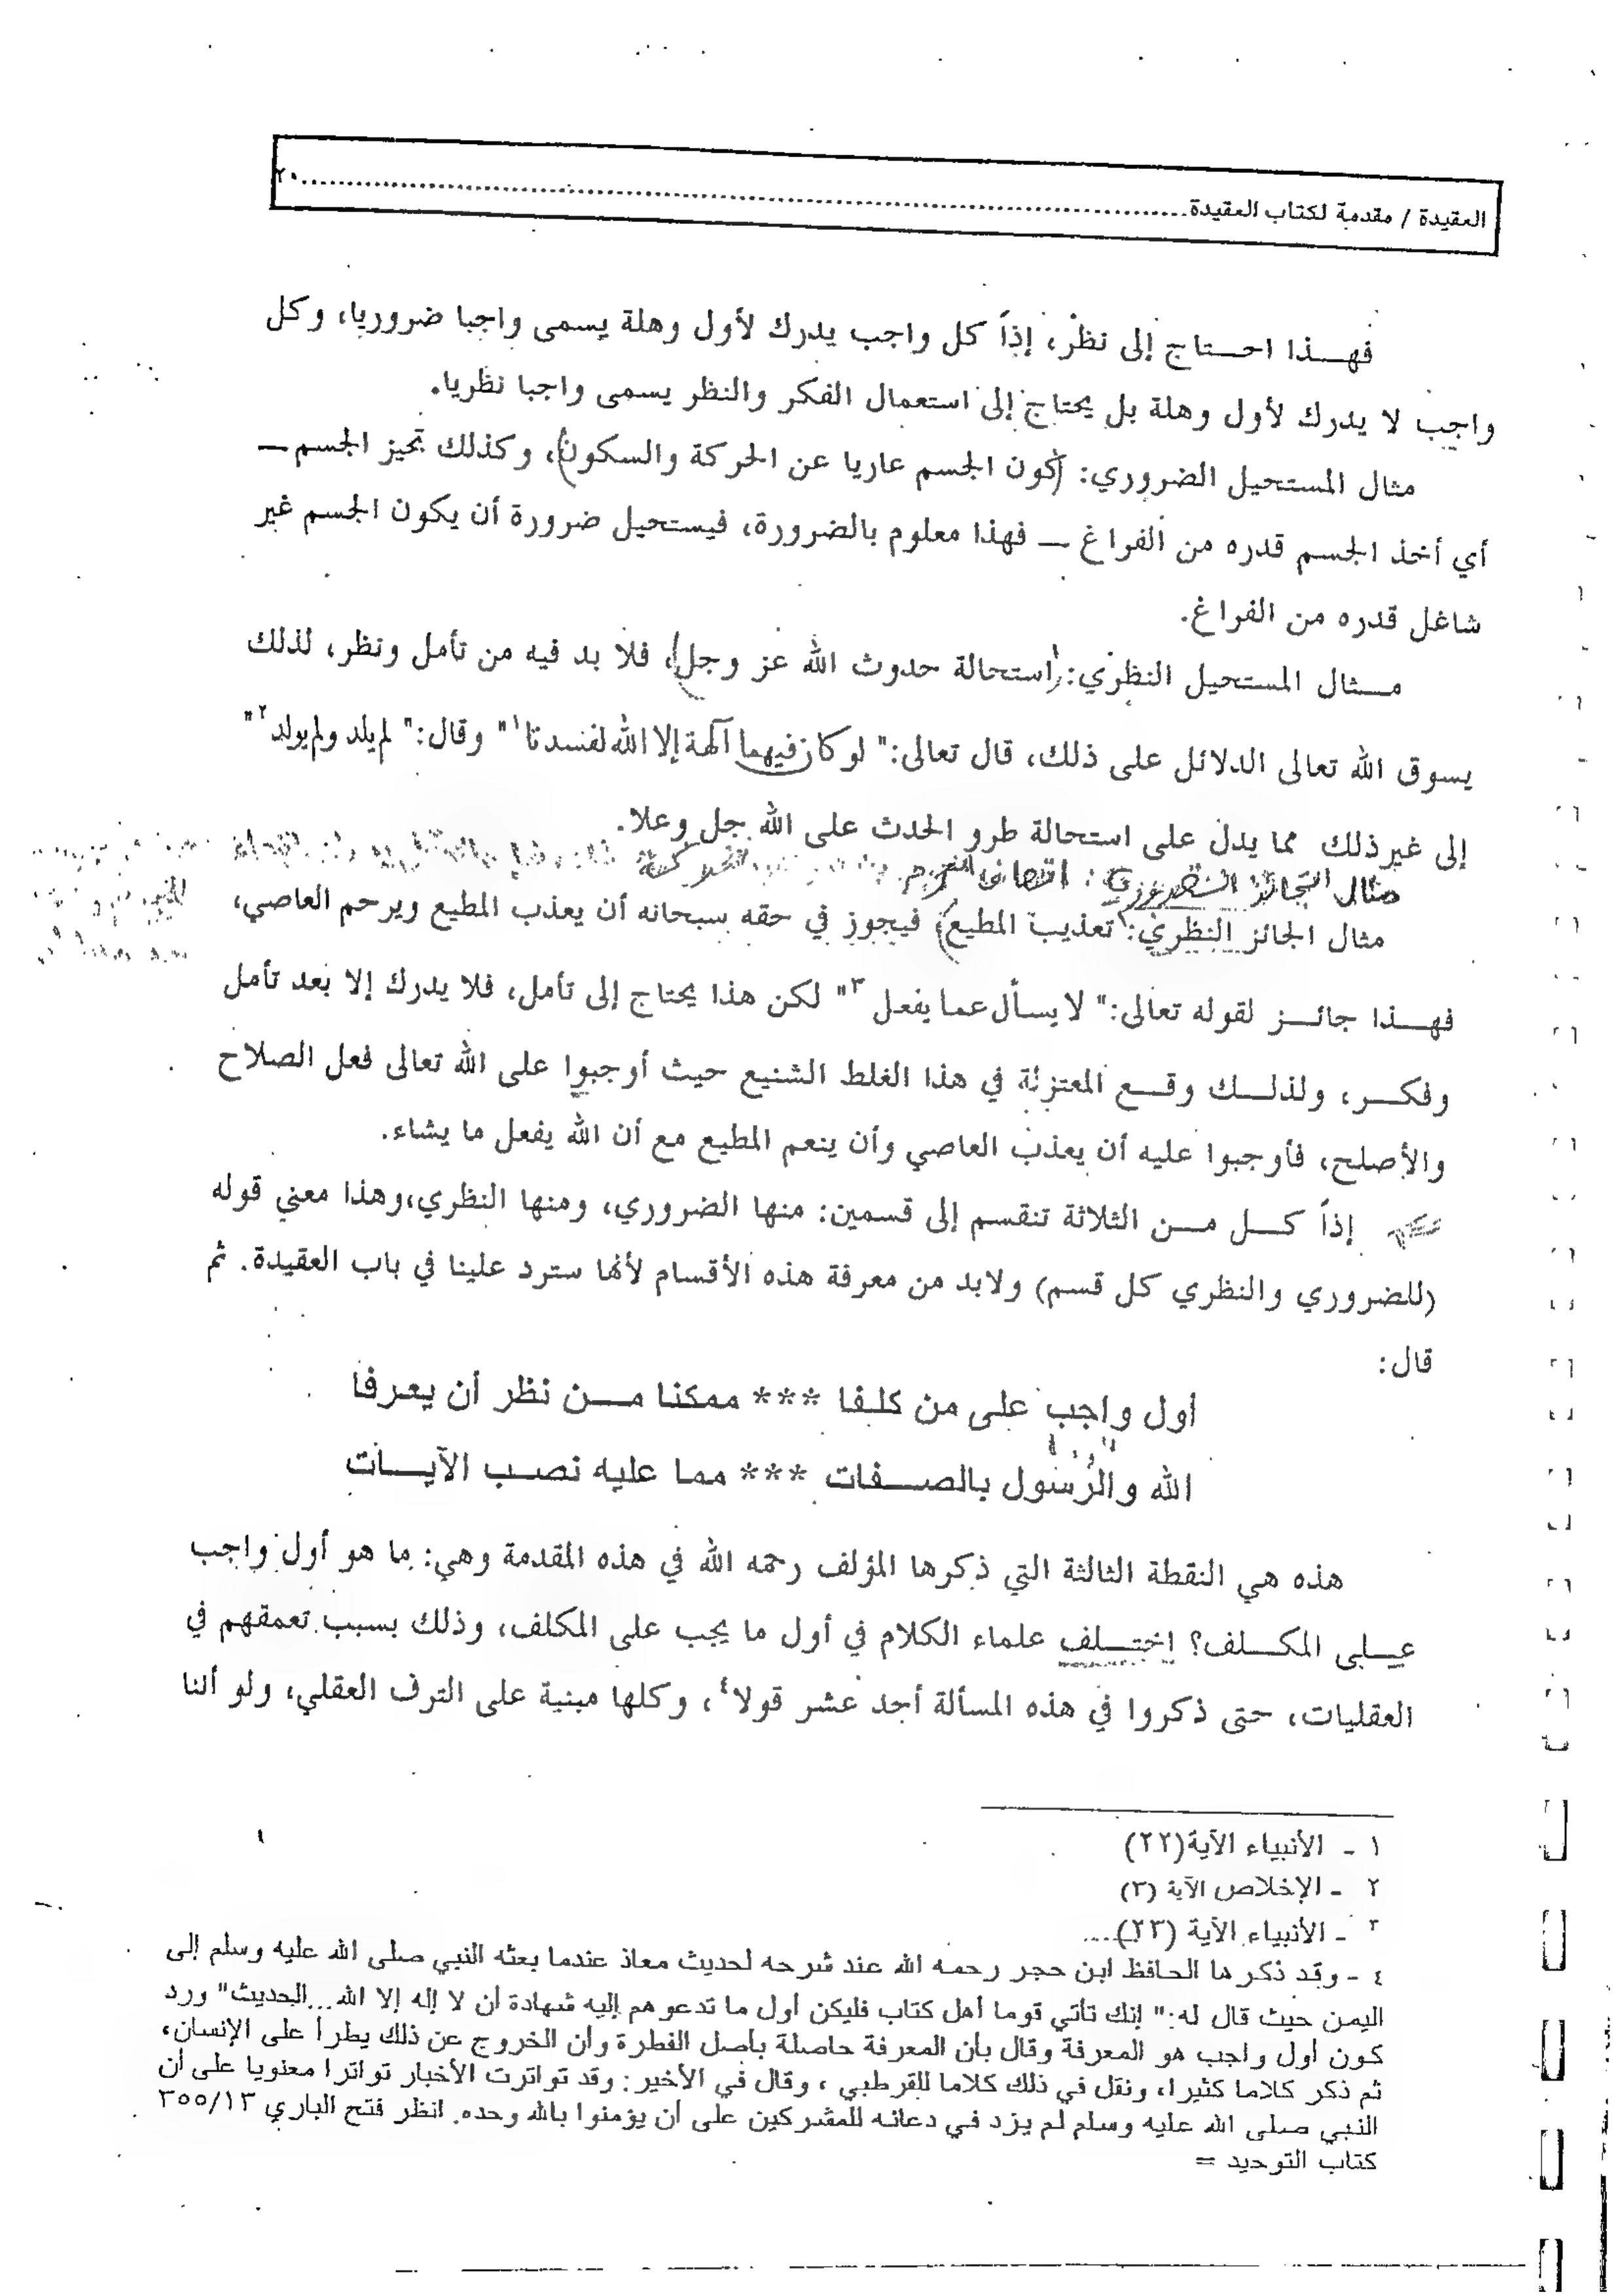 العقيدة / مقدمة لكتاب العقيدة..............................٢٠
فهـــذا احـــتاج إلى نظر، إذاً كل واجب يدرك لأول وهلة يسمى واجبا ضروريا، وكل
واجب لا يدرك لأول وهلة بل يحتاج إلى استعمال الفكر والنظر يسمى واجبا نظريا.
مثال المستحيل الضروري: (كون الجسم عاريا عن الحركة والسكون)، وكذلك تحيز الجسم ــ
أي أخذ الجسم قدره من الفراغ ــ فهذا معلوم بالضرورة، فيستحيل ضرورة أن يكون الجسم غير
شاغل قدره من الفراغ.
مـــثال المستحيل النظري: (استحالة حدوث الله عز وجل)، فلا بد فيه من تأمل ونظر، لذلك
يسوق الله تعالى الدلائل على ذلك، قال تعالى:" لو كان فيهما آلهة إلا الله لفسدتا١" وقال:" لم يلد ولم يولد٢"
إلى غير ذلك مما يدل على استحالة طرو الحدث على الله جل وعلا.
مثال الجائز الضروري :
مثال الجائز النظري: (تعذيب المطيع) فيجوز في حقه سبحانه أن يعذب المطيع ويرحم العاصي،
فهـــذا جائـــز لقوله تعالى:" لا يسأل عما يفعل ٣" لكن هذا يحتاج إلى تأمل، فلا يدرك إلا بعد تأمل
وفكـــر، ولذلـــك وقـــع المعتزلة في هذا الغلط الشنيع حيث أوجبوا على الله تعالى فعل الصلاح
والأصلح، فأوجبوا عليه أن يعذب العاصي وأن ينعم المطيع مع أن الله يفعل ما يشاء.
إذاً كـــل مـــن الثلاثة تنقسم إلى قسمين: منها الضروري، ومنها النظري،وهذا معني قوله
(للضروري والنظري كل قسم) ولابد من معرفة هذه الأقسام لأنها سترد علينا في باب العقيدة. ثم
قال:
أول واجب على من كلفا *** ممكنا مـــن نظر أن يعرفا
الله والرسول بالصـــفات *** مما عليه نصب الآيـــات
هذه هي النقطة الثالثة التي ذكرها المؤلف رحمه الله في هذه المقدمة وهي: ما هو أول واجب
عـــلى المكـــلف؟ اختـــلف علماء الكلام في أول ما يجب على المكلف، وذلك بسبب تعمقهم في
العقليات، حتى ذكروا في هذه المسألة أحد عشر قولا٤، وكلها مبنية على الترف العقلي، ولو أننا
١ - الأنبياء الآية(٢٢)
٢ - الإخلاص الآية (٣)
٣ - الأنبياء الآية (٢٣)....
٤ - وقد ذكرها الحافظ ابن حجر رحمه الله عند شرحه لحديث معاذ عندما بعثه النبي صلى الله عليه وسلم إلى
اليمن حيث قال له:" إنك تأتي قوما أهل كتاب فليكن أول ما تدعوهم إليه شهادة أن لا إله إلا الله...الحديث" ورد
كون أول واجب هو المعرفة وقال بأن المعرفة حاصلة بأصل الفطرة وأن الخروج عن ذلك يطرأ على الإنسان،
ثم ذكر كلاما كثيرا، ونقل في ذلك كلاما للقرطبي ، وقال في الأخير: وقد تواترت الأخبار تواترا معنويا على أن
النبي صلى الله عليه وسلم لم يزد في دعائه للمشركين على أن يؤمنوا بالله وحده. انظر فتح الباري ٣٥٥/١٣
كتاب التوحيد =